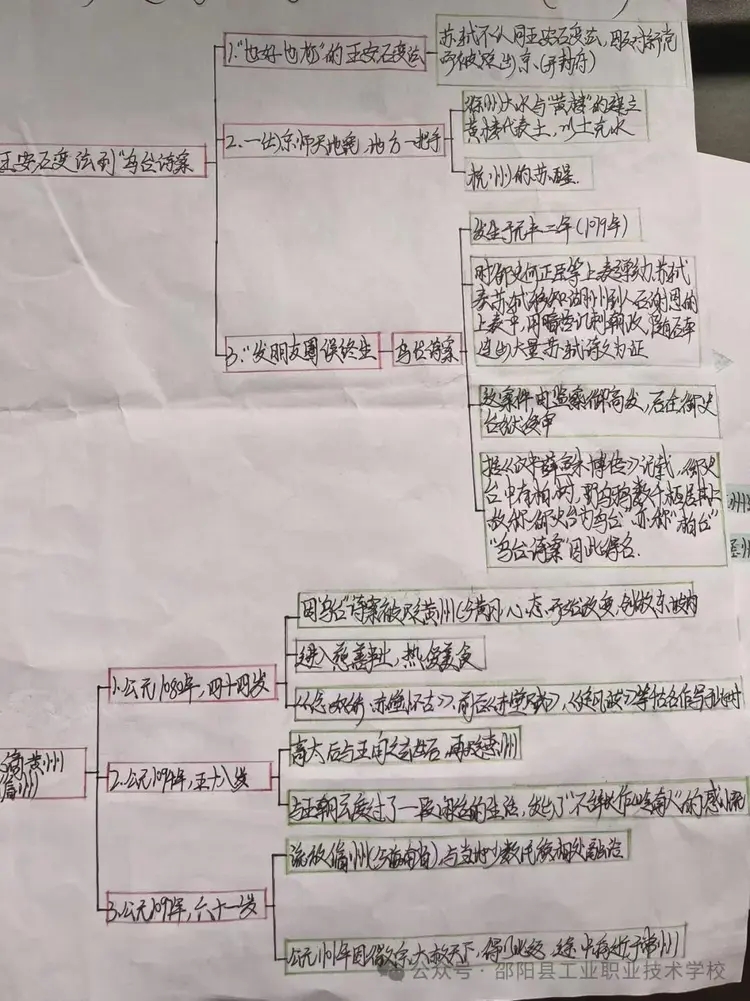 1."也好也极"的王安石变法
苏轼不认同王安石变法,因反对新党
而被贬出京.(开封府)
王安石变法到"乌台诗案
2.一出京师天地宽,地方一把手
徐州大水与"黄楼"的建立
黄楼代表土,以土克水
杭州的苏醒.
3."发朋友圈误终生
乌台诗案
发生于元丰二年(1079年)
时御史何正臣等上表弹劾苏轼
奏苏轼移知湖州到任后谢恩的
上表中,用暗讽讥刺朝政,随后牵
连出大量苏轼诗文为证
故案件由监察御史告发,后在御史
台狱受审
据《汉书薛宣朱博传》记载,御史
台中有柏树,野乌鸦数千栖居其上
故称御史台为"乌台"亦称"柏台"
"乌台诗案"因此得名.
1.公元1080年,四十四岁
因乌台诗案被贬黄州(今黄冈)心态开始改变,
进入慈善事业,热爱美食
《念奴娇·赤壁怀古》,前后《赤壁赋》,《定风波》等佳名作写于此时
黄州
2.公元1094年,五十八岁
高太后与王闰之去世后,再贬惠州
与王朝云度过了一段闲适的生活,发出了"不辞长作岭南人"的感慨
3.公元1097年,六十一岁
流放儋州(今海南省)与当地少数民族相处融洽
公元1101年因徽宗大赦天下,得以北返 途中病逝于常州
公众号·邵阳县工业职业技术学校